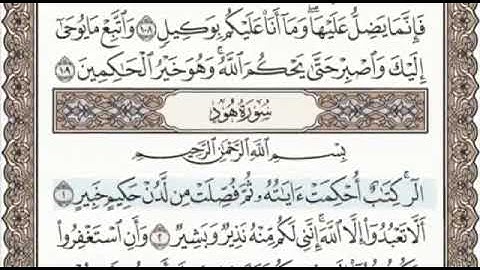 فَإِنَّمَا يَضِلُّ عَلَيْهَا ۖ وَمَا أَنَا۠ عَلَيْكُم بِوَكِيلٍ ١٠٨ وَٱتَّبِعْ مَا يُوحَىٰٓ
إِلَيْكَ وَٱصْبِرْ حَتَّىٰ يَحْكُمَ ٱللَّهُ ۚ وَهُوَ خَيْرُ ٱلْحَٰكِمِينَ ١٠٩
سُورَةُ هُودٍ
بِسْمِ ٱللَّهِ ٱلرَّحْمَٰنِ ٱلرَّحِيمِ
الٓر ۚ كِتَٰبٌ أُحْكِمَتْ ءَايَٰتُهُۥ ثُمَّ فُصِّلَتْ مِن لَّدُنْ حَكِيمٍ خَبِيرٍ ١
أَلَّا تَعْبُدُوٓا۟ إِلَّا ٱللَّهَ ۚ إِنَّنِى لَكُم مِّنْهُ نَذِيرٌ وَبَشِيرٌ ٢ وَأَنِ ٱسْتَغْفِرُوا۟